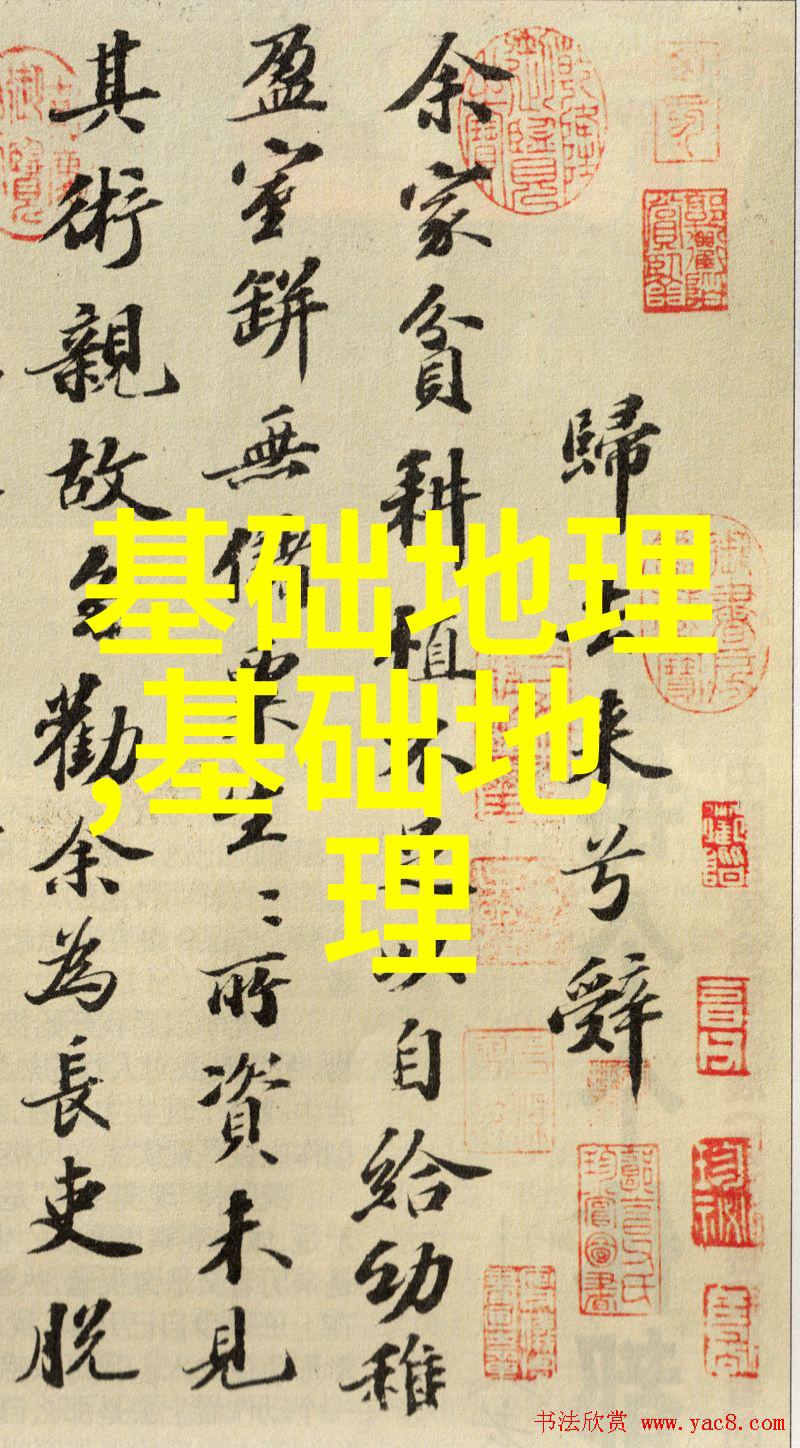 歸去来兮辭
余家貧耕植不足以自給幼稚
盈室缾無儲粟生〻所資未見
其術親故多勸余為長吏脱
基础地理
,基础地
理
书法欣赏 www.yac8.com